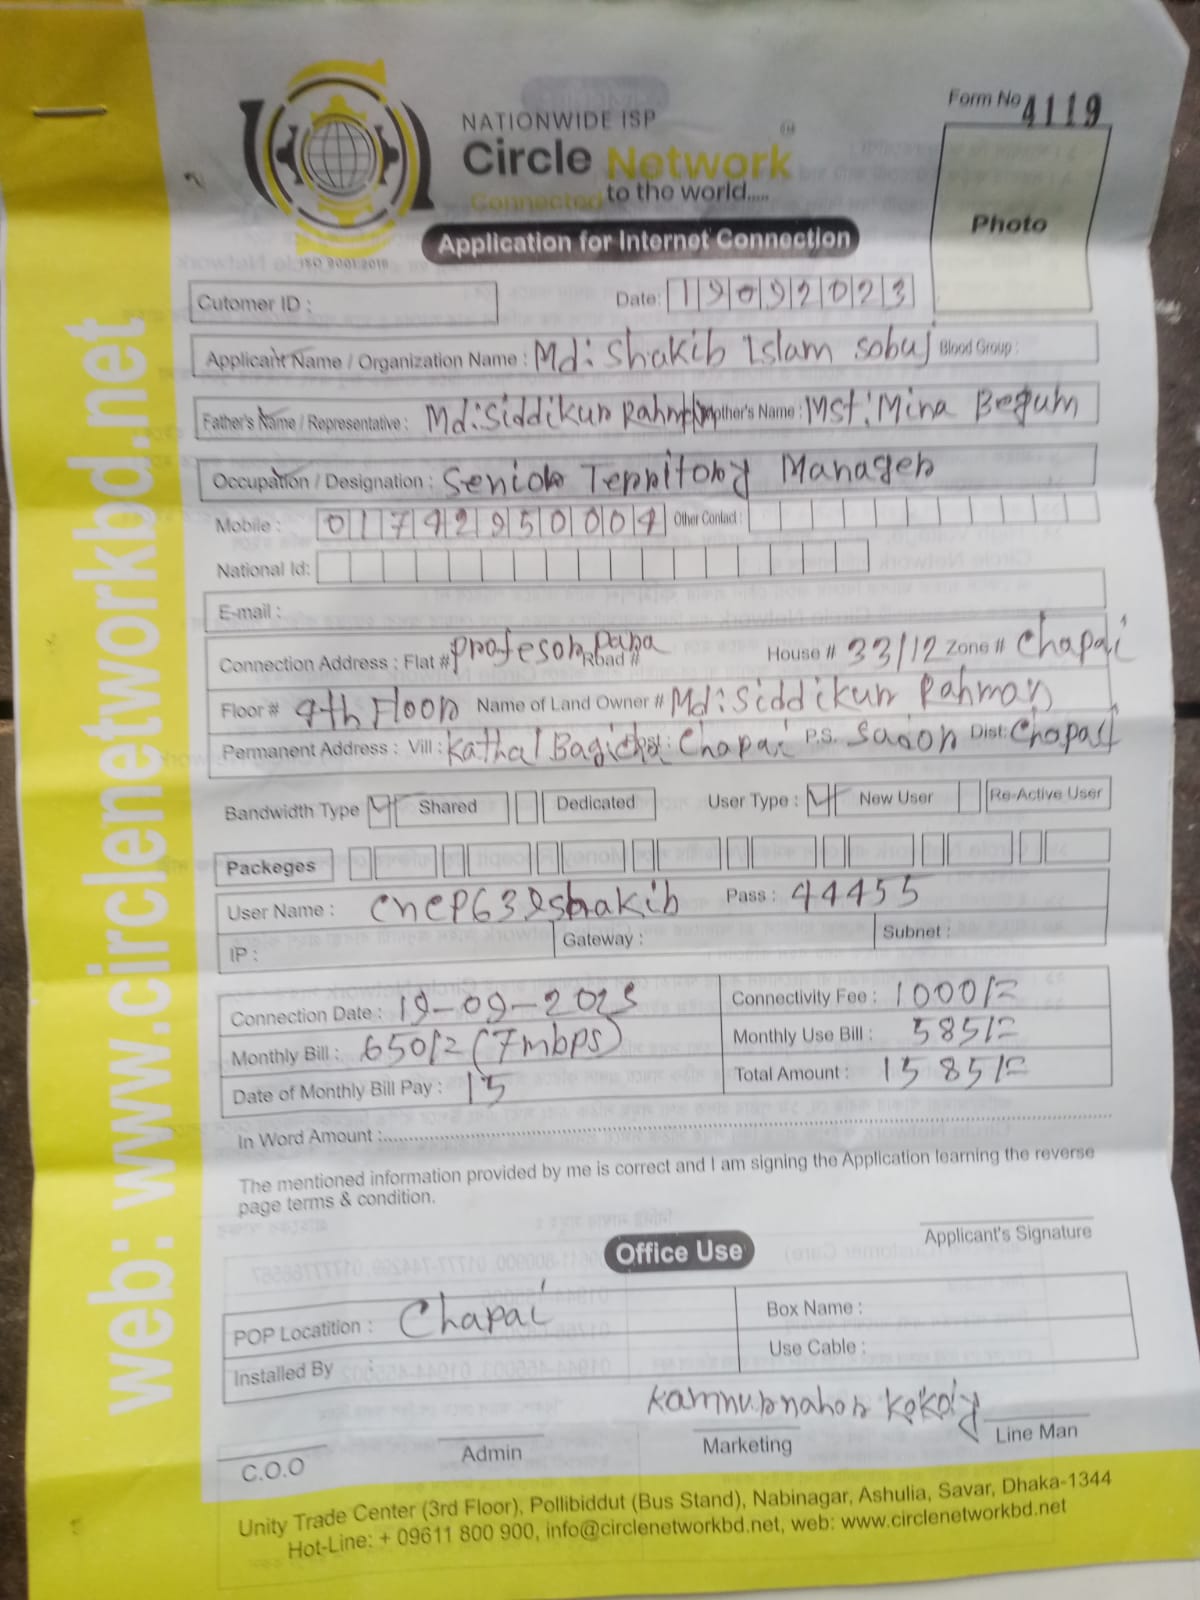 web: www.circlenetworkbd.net
Form No 4119
NATIONWIDE ISP
Circle Network
Connected to the world.....
ISO 9001:2015
Photo
Application for Internet Connection
Cutomer ID :
Date: 19092023
Applicant Name / Organization Name : Md: Shakib Islam sobuj Blood Group :
Father's Name / Representative : Md:Siddikur Rahman Mother's Name : Mst: Mina Begum
Occupation / Designation : Senior Territory Manager
Mobile : 01742950004 Other Contact :
National Id:
E-mail :
Connection Address : Flat # Profesor Para Road # House # 33/12 Zone # Chapai
Floor # 4th Floor Name of Land Owner # Md:Siddikur Rahman
Permanent Address : Vill : Kathal Bagicha Chapai P.S. Sador Dist: Chapai
Bandwidth Type Shared Dedicated User Type : New User Re-Active User
Packeges
User Name : Pass : 44455
IP : Gateway : Subnet :
Connection Date : 19-09-2023 Connectivity Fee : 1000/=
Monthly Bill : 650/= (7mbps) Monthly Use Bill : 585/=
Date of Monthly Bill Pay : 15 Total Amount : 1585/=
In Word Amount :
The mentioned information provided by me is correct and I am signing the Application learning the reverse
page terms & condition.
Applicant's Signature
Office Use
POP Locatition : Chapai Box Name :
Installed By : Use Cable :
C.O.O Admin Marketing Line Man
Unity Trade Center (3rd Floor), Pollibiddut (Bus Stand), Nabinagar, Ashulia, Savar, Dhaka-1344
Hot-Line: + 09611 800 900, info@circlenetworkbd.net, web: www.circlenetworkbd.net